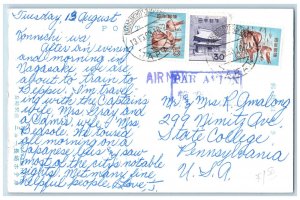 Tuesday 13 August
Konnichi wa
After an evening
and morning in
Nagasaki we are
about to train to
Beppu. I'm travel-
ing with the Captain's
wife, Mrs. Gray and
a Cdmr's wife, Mrs.
We toured
all morning on a
Japanese bus & saw
most of the city's notable
sights. Met many fine
helpful people. Love J.
PO
30
AIR MAIL
PAR AVION
Mr & Mrs R. Amalong
299 Nimitz Ave
State College
Pennsylvania
U.S.A.